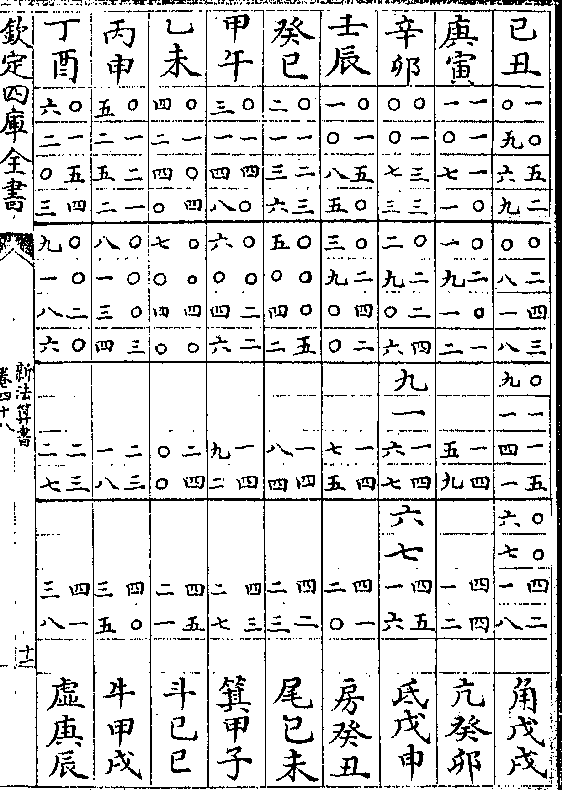 己丑 一〇 〇九 五六 二九 〇〇 二八 四一 三八 〇九 一一 一四 五一 〇六 〇七 四一 二八 角戊戌
庚寅 一一 一〇 一七 〇一 〇一 二九 〇一 一二 一五 四九 四一 四二 亢癸卯
辛卯 〇〇 一〇 三七 三三 〇二 二九 二〇 四六 九一 一六 四七 六七 四一 五六 氐戊申
壬辰 〇一 一〇 五八 〇五 〇三 二九 四〇 二〇 一七 四五 四二 一〇 房癸丑
癸巳 〇二 一一 二三 三六 〇五 〇〇 〇四 五二 一八 四四 四二 二三 尾己未
甲午 〇三 一一 四四 〇八 〇六 〇〇 二四 二六 一九 四二 四二 三七 箕甲子
乙未 〇四 一二 〇四 四〇 〇七 〇〇 四四 〇〇 二〇 四〇 四二 五一 斗己巳
丙申 〇五 一二 二五 一二 〇八 〇一 〇三 三四 二一 三八 四三 〇五 牛甲戌
丁酉 〇六 一二 五〇 四三 〇九 〇一 二八 〇六 二二 三七 四三 一八 虛庚辰
欽定四庫全書
新法算書
卷四十八
十二